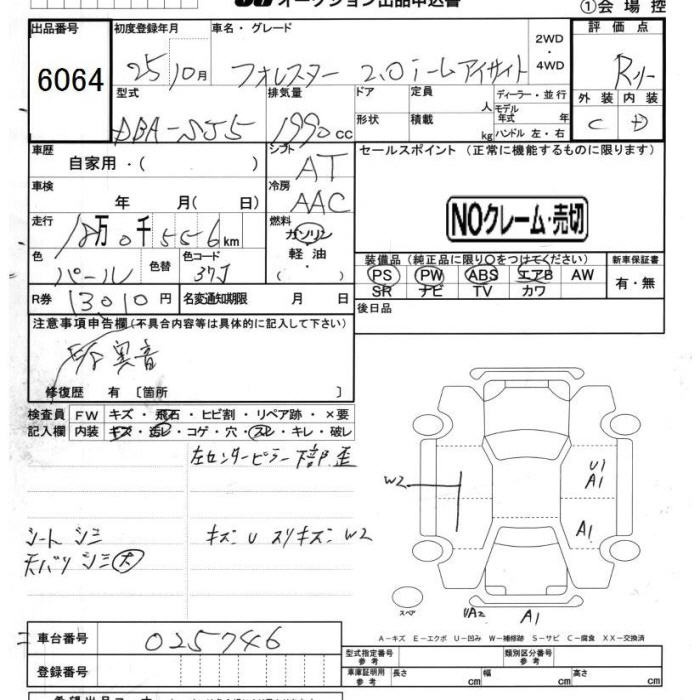 オークション出品申込書
①会場控
出品番号
6064
初度登録年月
25 10月
車名・グレード
フォレスター 2.0i-Lアイサイト
2WD
・
4WD
評価点
Rノリ
外装 内装
C D
型式
DBA-SJ5
排気量
1990cc
ドア
形状
定員
人
積載
kg
ディーラー・並行
モデル
年式 年
ハンドル 左・右
車歴
自家用・( )
シフト
AT
車検
年 月( 日)
冷房
AAC
走行
18万0千556km
燃料
ガソリン
軽油
・( )
色
パール
色替
色コード
37J
R券
13010円
名変通知期限 月 日
セールスポイント (正常に機能するものに限ります)
NOクレーム・売切
装備品(純正品に限り○をつけてください)
PS PW ABS エアB AW
SR ナビ TV カワ
新車保証書
有・無
後日品
注意事項申告欄(不具合内容等は具体的に記入して下さい)
異音
修復歴 有 〔箇所 〕
検査員 FW キズ・飛石・ヒビ割・リペア跡・×要
記入欄 内装 キズ・汚レ・コゲ・穴・スレ・キレ・破レ
左センターピラー下部歪
シートシミ
天バリシミ大
キズU スリキズW2
W2
U1
A1
A1
スペア
UA2
A1
A-キズ E-エクボ U-凹み W-補修跡 S-サビ C-腐食 XX-交換済
車台番号
025746
登録番号
型式指定番号
参考
類別区分番号
参考
車庫証明用
参考
長さ cm
幅 cm
高さ cm